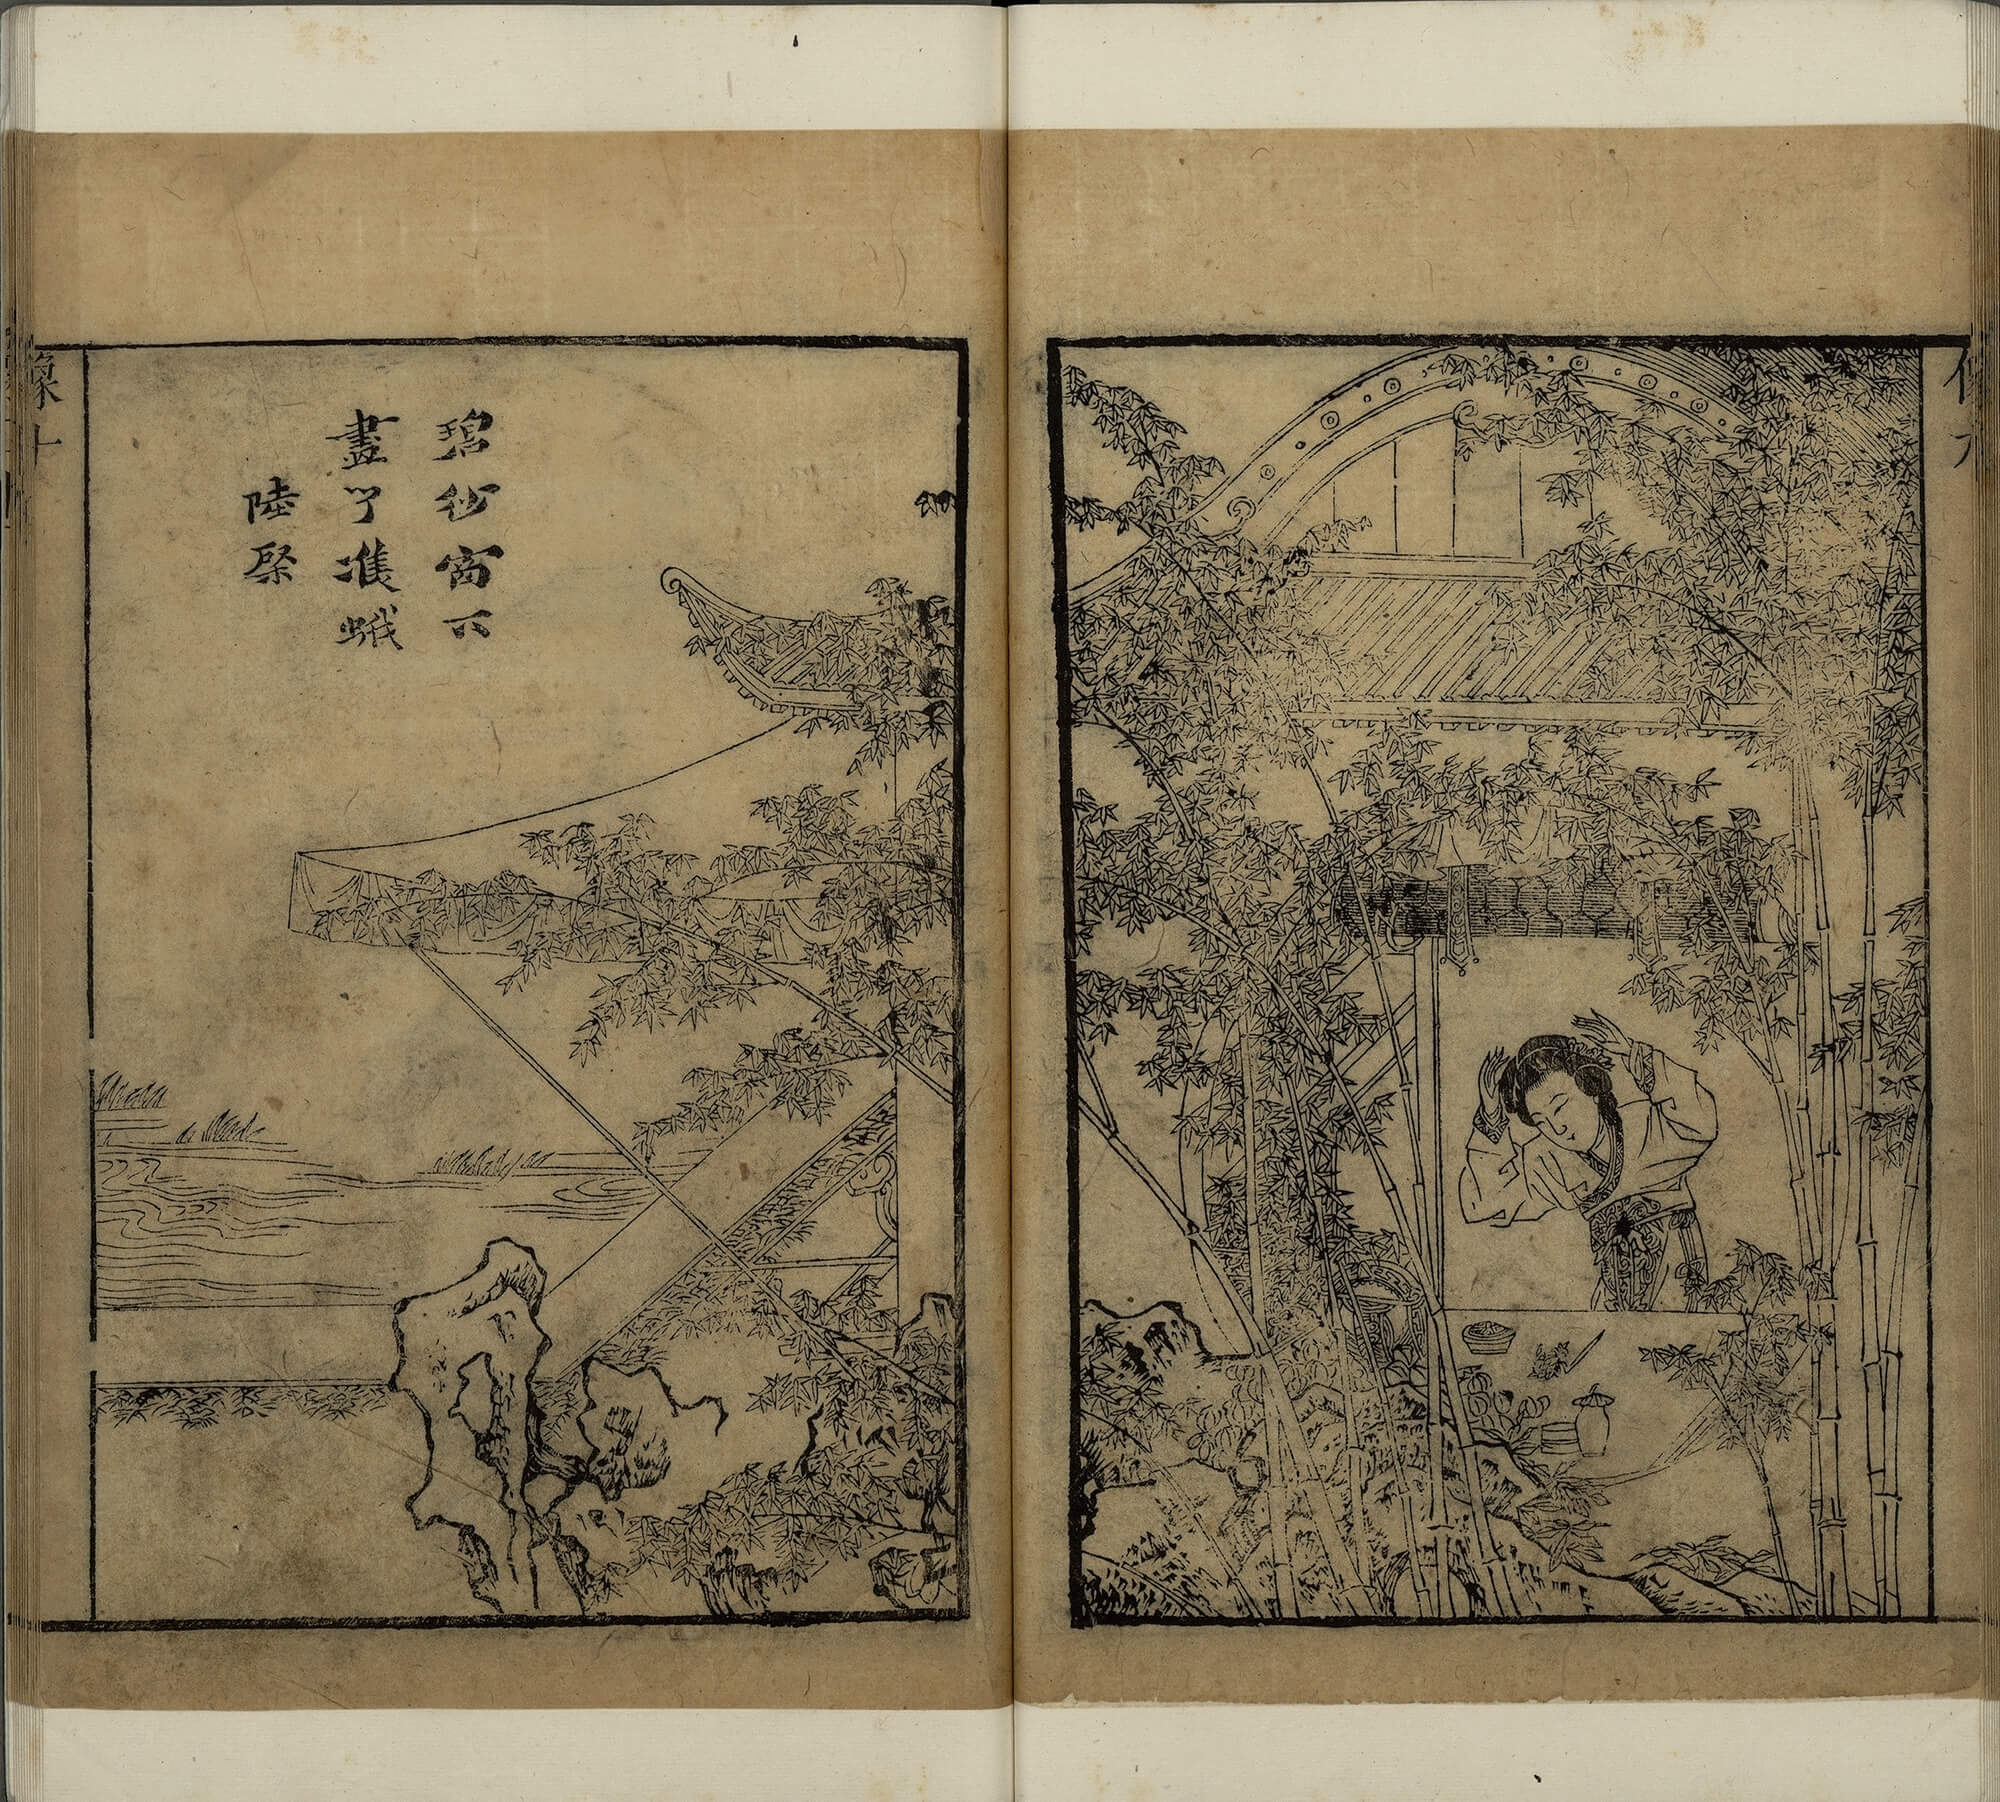 碧紗窗下
畫了雙蛾
陸棨
像十